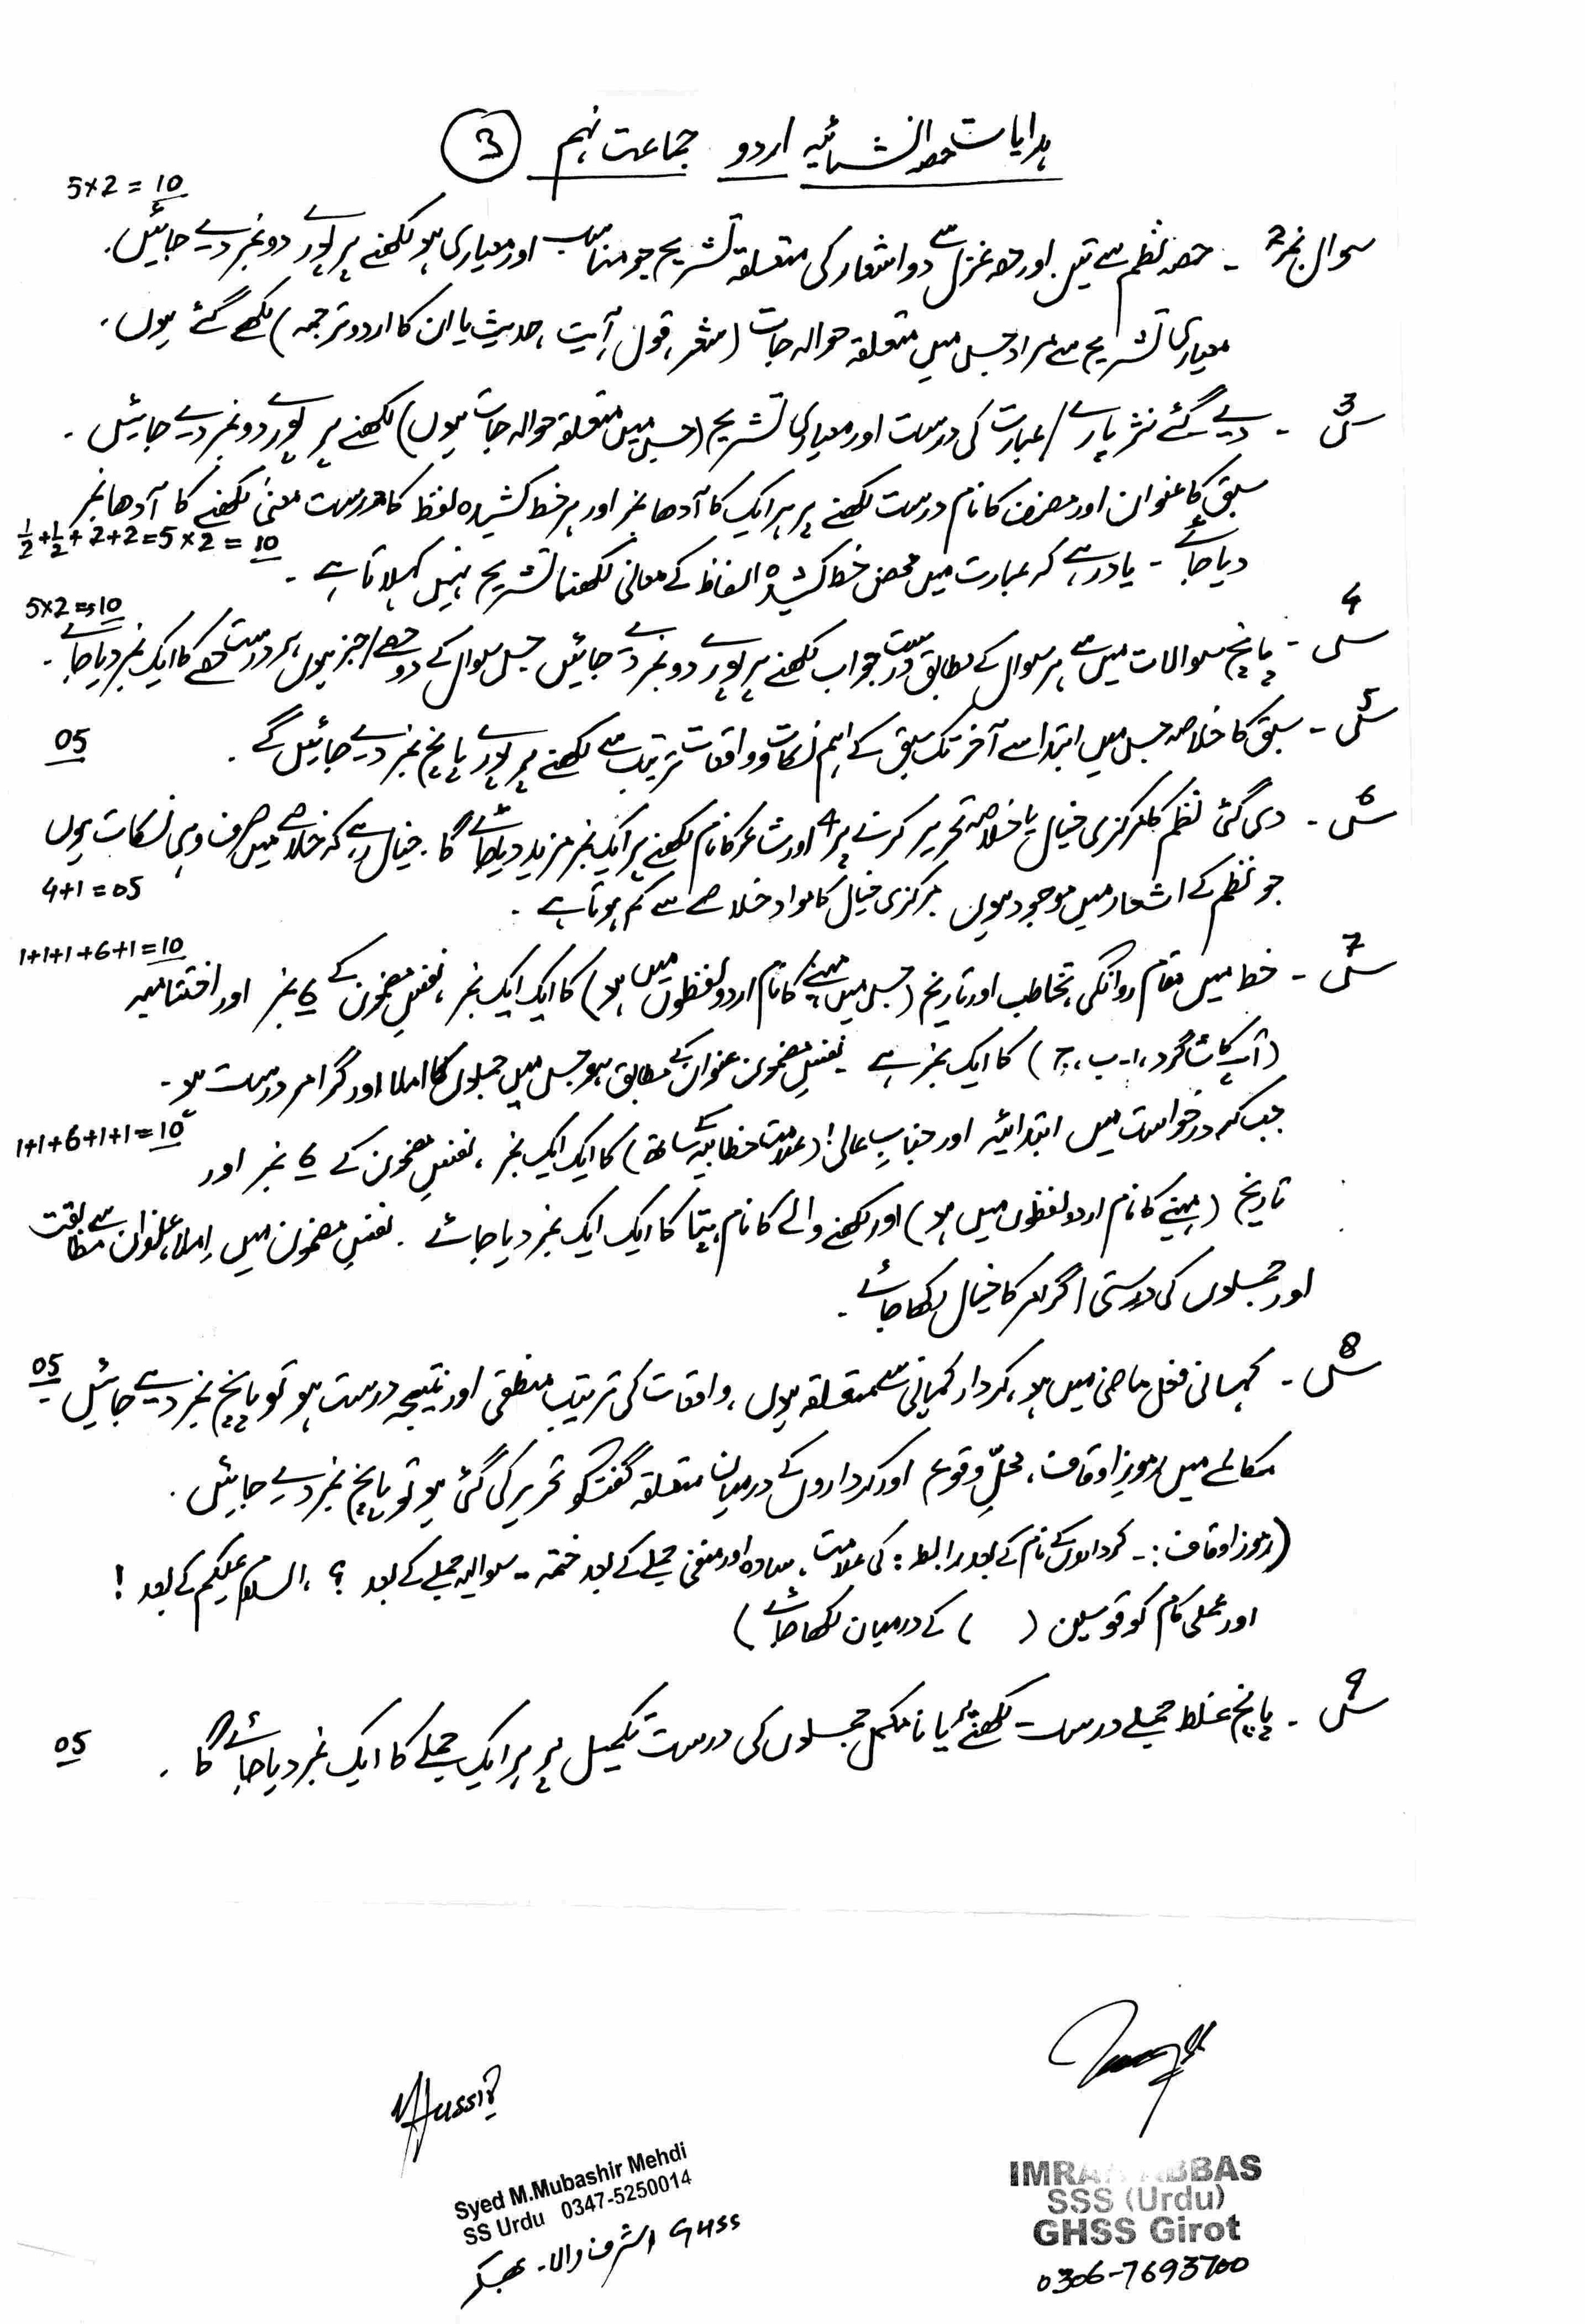 ہدایات حصہ انشائیہ اردو جماعت نہم 3
5×2 = 10
سوال نمبر 2 - حصہ نظم سے تین اور حصہ غزل سے دو اشعار کی متعلقہ تشریح جو مناسب اور معیاری ہو لکھنے پر پورے دو نمبر دیے جائیں۔
معیاری تشریح سے مراد جس میں متعلقہ حوالہ جات (شعر، قول، آیت، حدیث یا ان کا اردو ترجمہ) لکھے گئے ہوں۔
س 3 - دیے گئے نثر پارے / عبارت کی درست اور معیاری تشریح (جس میں متعلقہ حوالہ جات ہوں) لکھنے پر پورے دو نمبر دیے جائیں۔
سبق کا عنوان اور مصنف کا نام درست لکھنے پر ہر ایک کا آدھا نمبر اور ہر خط کشیدہ لفظ کا درست معنیٰ لکھنے کا آدھا نمبر
دیا جائے - یاد رہے کہ عبارت میں محض خط کشیدہ الفاظ کے معانی لکھنا تشریح نہیں کہلاتا ہے۔ ½+½+2+2=5×2=10
5×2=10
س 4 - پانچ سوالات میں سے ہر سوال کے مطابق درست جواب لکھنے پر پورے دو نمبر دیے جائیں جس سوال کے دو حصے/جز ہوں، ہر درست حصے کا ایک نمبر دیا جائے۔
س 5 - سبق کا خلاصہ جس میں ابتدا سے آخر تک سبق کے اہم نکات و واقعات ترتیب سے لکھنے پر پورے پانچ نمبر دیے جائیں گے۔ 05
س 6 - دی گئی نظم کا مرکزی خیال یا خلاصہ تحریر کرنے پر 4 اور شاعر کا نام لکھنے پر ایک نمبر مزید دیا جائے گا۔ خیال رہے کہ خلاصے میں صرف وہی نکات ہوں
جو نظم کے اشعار میں موجود ہوں مرکزی خیال کا مواد خلاصے سے کم ہوتا ہے۔ 4+1=05
1+1+1+6+1=10
س 7 - خط میں مقام روانگی، تخاطب اور تاریخ (جس میں مہینے کا نام اردو لفظوں میں ہو) کا ایک ایک نمبر، نفسِ مضمون کے 6 نمبر اور اختتامیہ
(آپ کا شاگرد، ا۔ب،ج) کا ایک نمبر ہے - نفسِ مضمون عنوان کے مطابق ہو جس میں جملوں کا املا اور گرامر درست ہو۔
جب کہ درخواست میں ابتدائیہ اور جنابِ عالی! (علامت خطابیہ کے ساتھ) کا ایک ایک نمبر، نفسِ مضمون کے 6 نمبر اور 1+1+6+1+1=10
تاریخ (مہینے کا نام اردو لفظوں میں ہو) اور لکھنے والے کا نام، پتا کا ایک ایک نمبر دیا جائے۔ نفسِ مضمون میں اِملا، عنوان سے مطابقت
اور جملوں کی درستی / گرامر کا خیال رکھا جائے۔
س 8 - کہانی فعل ماضی میں ہو، کردار کہانی سے متعلقہ ہوں، واقعات کی ترتیب منطقی اور نتیجہ درست ہو تو پانچ نمبر دیے جائیں۔ 05
مکالمے میں رموزِ اوقاف، محلِّ وقوع اور کرداروں کے درمیان متعلقہ گفتگو تحریر کی گئی ہو تو پانچ نمبر دیے جائیں۔
(رموز اوقاف :- کرداروں کے نام کے بعد رابطہ : کی علامت، سادہ اور منفی جملے کے بعد ختمہ - سوالیہ جملے کے بعد ؟ ، السلام علیکم کے بعد !
اور عملی کام کو قوسین ( ) کے درمیان لکھا جائے)
س 9 - پانچ غلط جملے درست لکھنے پر یا نامکمل جملوں کی درست تکمیل پر ہر ایک جملے کا ایک نمبر دیا جائے گا۔ 05
Hussain
Syed M.Mubashir Mehdi
SS Urdu 0347-5250014
GHSS اشرف والا - بھکر
IMRAN ABBAS
SSS (Urdu)
GHSS Girot
0306-7693700